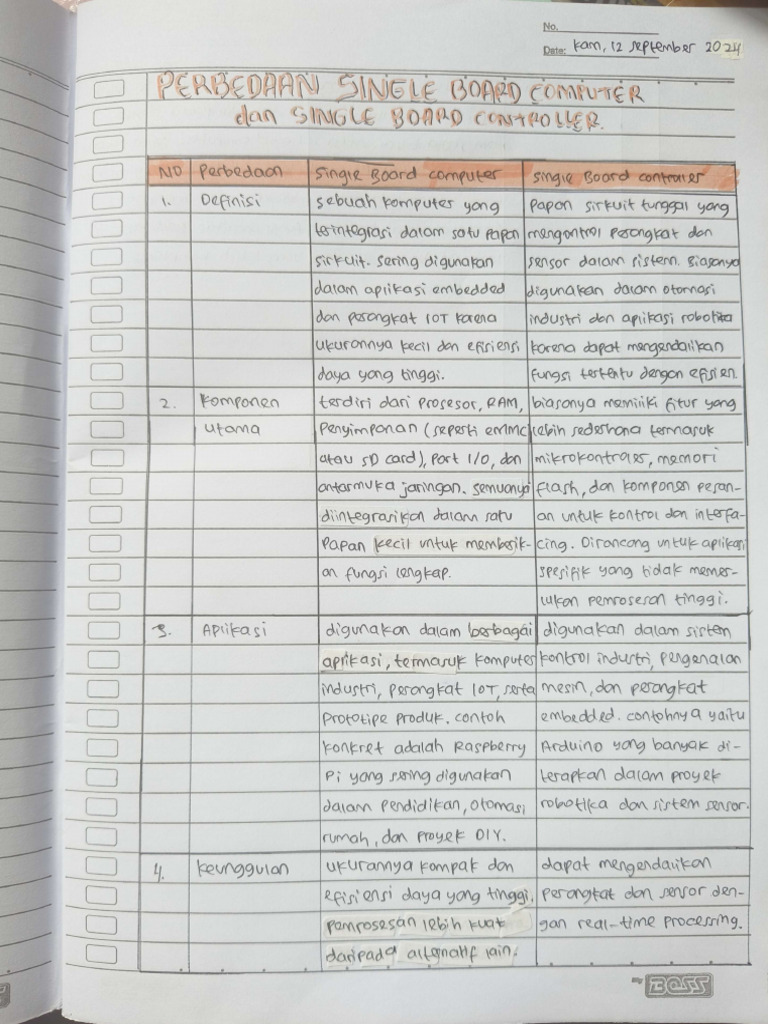 No.
Date: Kam, 12 September 2024
PERBEDAAN SINGLE BOARD COMPUTER
dan SINGLE BOARD CONTROLLER.
NO Perbedaan Single Board computer Single Board controler
1. Definisi sebuah komputer yang papan sirkuit tunggal yang
terintegrasi dalam satu papan mengontrol perangkat dan
sirkuit. sering digunakan sensor dalam sistem. Biasanya
dalam aplikasi embedded digunakan dalam otomasi
dan perangkat IOT karena industri dan aplikasi robotika
ukurannya kecil dan efisiensi karena dapat mengendalikan
daya yang tinggi. fungsi tertentu dengan efisien.
2. Komponen terdiri dari prosesor, RAM, biasanya memiliki fitur yang
utama Penyimpanan (seperti eMMC lebih sederhana termasuk
atau SD card), Port I/O, dan mikrokontroler, memori
antarmuka jaringan. semuanya flash, dan komponen peran-
diintegrasikan dalam satu an untuk kontrol dan interfa-
Papan kecil untuk memberik- cing. Dirancang untuk aplikasi
an fungsi lengkap. spesifik yang tidak memer-
lukan pemrosesan tinggi.
3. Aplikasi digunakan dalam berbagai digunakan dalam sistem
aplikasi, termasuk komputer kontrol industri, pengenalan
industri, perangkat IOT, serta mesin, dan perangkat
Prototipe produk. contoh embedded. contohnya yaitu
konkret adalah Raspberry Arduino yang banyak di-
Pi yang sering digunakan terapkan dalam proyek
dalam pendidikan, otomasi robotika dan sistem sensor.
rumah, dan proyek DIY.
4. Keunggulan ukurannya kompak dan dapat mengendalikan
efisiensi daya yang tinggi, perangkat dan sensor den-
pemrosesan lebih kuat gan real-time processing.
daripada alternatif lain.
BOSS